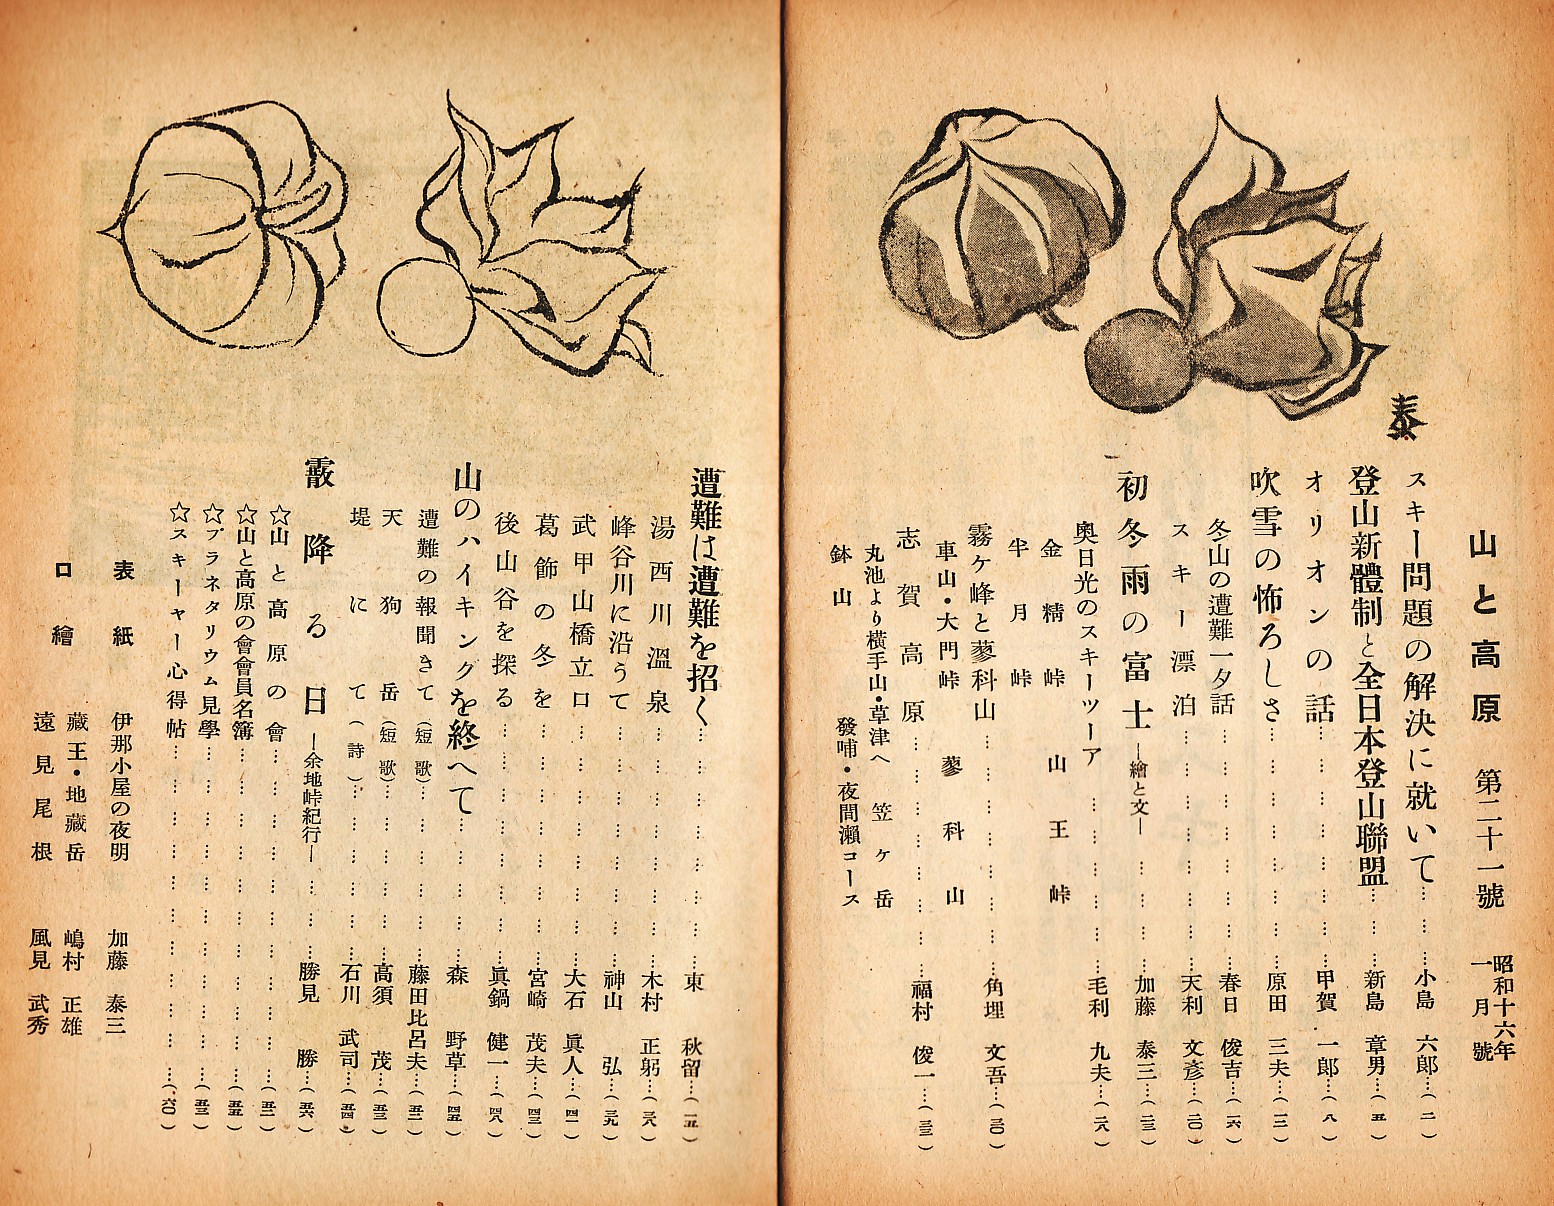 山と高原 第二十一號 昭和十六年一月號
スキー問題の解決に就いて……小島 六郎…(二)
登山新體制と全日本登山聯盟……新島 章男…(五)
オリオンの話……甲賀 一郎…(八)
吹雪の怖ろしさ……原田 三夫…(一三)
冬山の遭難一夕話……春日 俊吉…(一六)
スキー漂泊……天利 文彦…(二〇)
初冬雨の富士―繪と文―……加藤 泰三…(二三)
奧日光のスキーツーア……毛利 九夫…(二八)
金精峠 山王峠
半月峠
霧ケ峰と蓼科山……角埋 文吾…(三〇)
車山・大門峠 蓼科山
志賀高原……福村 俊一…(三三)
丸池より橫手山・草津へ 笠ヶ岳
鉢山 發哺・夜間瀨コース
泰
遭難は遭難を招く……東 秋留…(一五)
湯西川溫泉……木村 正躬…(三八)
峰谷川に沿うて……神山 弘…(三九)
武甲山橋立口……大石 眞人…(四一)
葛飾の冬を……宮崎 茂夫…(四三)
後山谷を探る……眞鍋 健一…(四八)
山のハイキングを終へて……森 野草…(四五)
遭難の報聞きて(短歌)……藤田比呂夫…(五二)
天狗岳(短歌)……高須 茂…(五三)
堤にて(詩)……石川 武司…(五四)
霰降る日―余地峠紀行―……勝見 勝…(五六)
☆山と高原の會……(五二)
☆山と高原の會會員名簿……(五五)
☆プラネタリウム見學……(五三)
☆スキーヤー心得帖……(六〇)
表紙 伊那小屋の夜明 加藤 泰三
口繪 藏王・地藏岳 嶋村 正雄
遠見尾根 風見 武秀